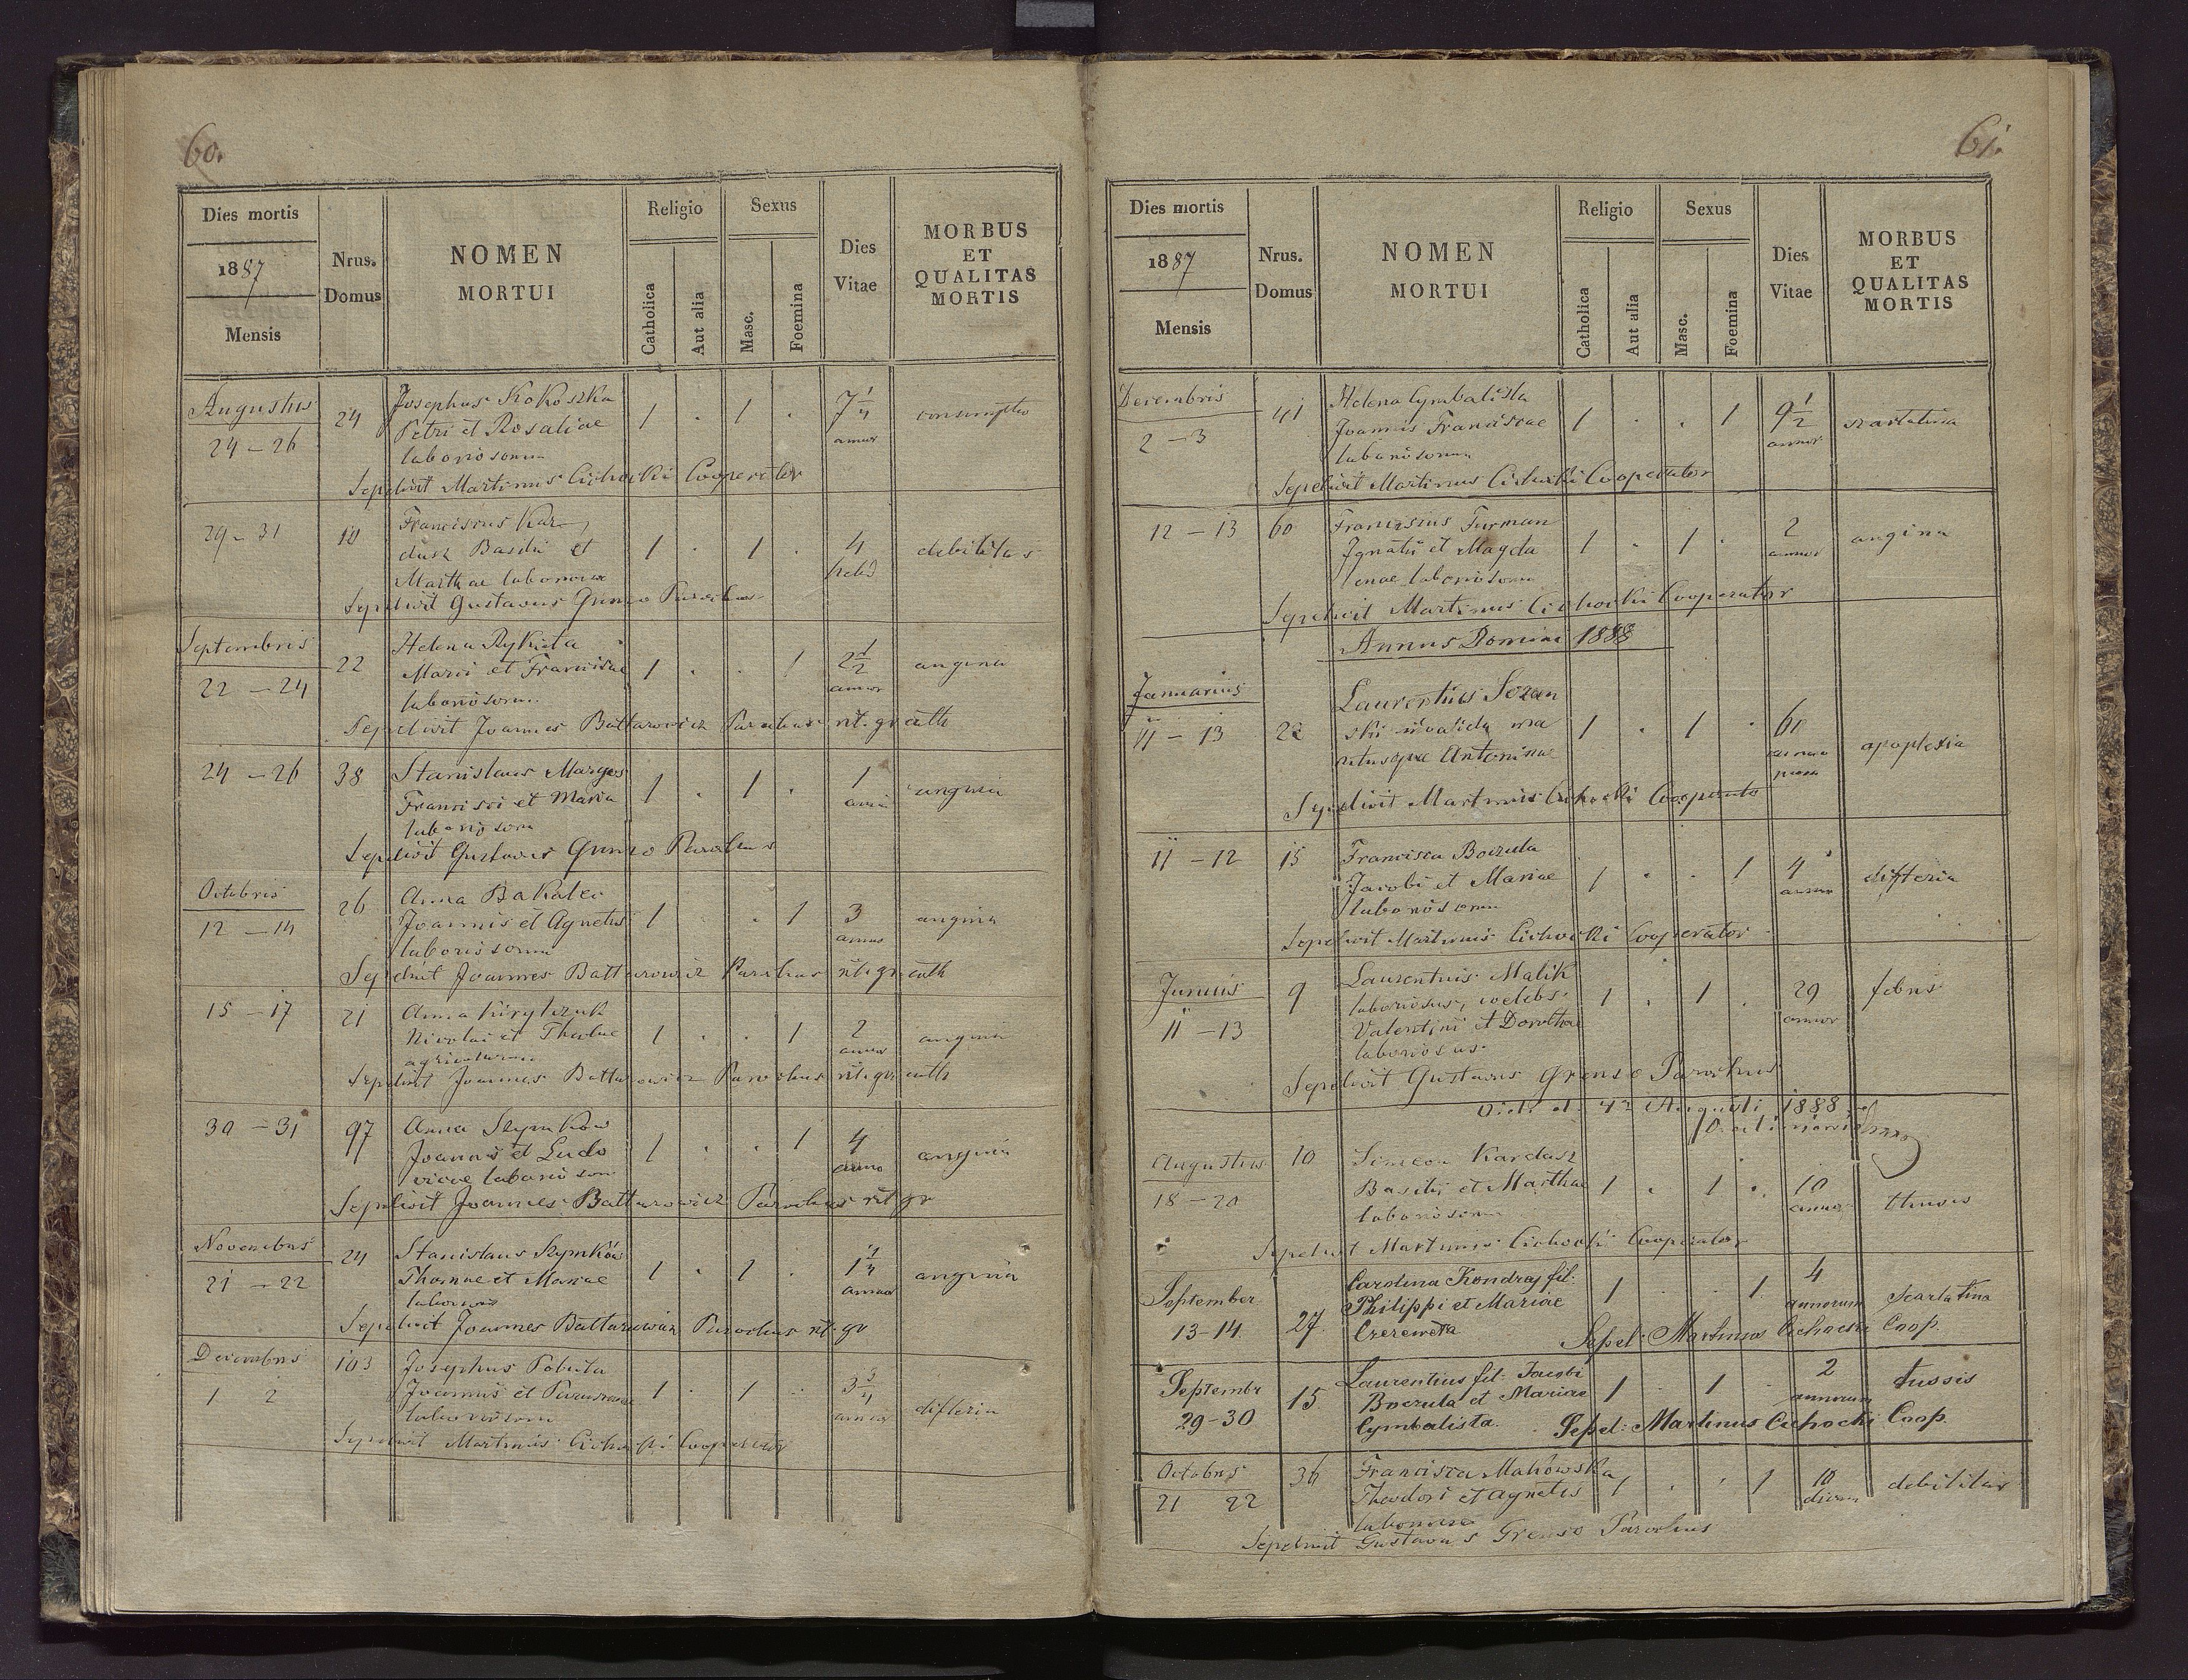 60.
Dies mortis
1887
Mensis
Nrus. Domus
NOMEN MORTUI
Religio
Catholica
Aut alia
Sexus
Masc.
Foemina
Dies Vitae
MORBUS ET QUALITAS MORTIS
Augustus 24 Josephus Kokoszka
24 – 26 Petri et Rosaliae 1 . 1 . 7 1/4 annor
laboriosorum
Sepelivit Martinus Cichocki Cooperator
29 – 31 10 Franciscus Kar-
dasz Basilii et 1 . 1 . 4 hebd debilitas
Marthae
Sepelivit Gustavus Parochus
Septembris 22 Helena Rykieta
22 – 24 1 . . 1 2 1/2 annor angina
laboriosorum
Sepelivit Joannes Battarowicz Parochus rit. gr cath
24 – 26 38 Stanislaus
Francisci et Maria 1 . 1 . 1 angina
Sepelivit Gustavus Parochus
Octobris 26 Anna
12 – 14 Joannis et Agnetis 1 . . 1 3 annor angina
laboriosorum
Sepelivit Joannes Battarowicz Parochus rit. gr cath
15 – 17 21 Anna
Nicolai et 1 . . 1 2 annor angina
Sepelivit Joannes Battarowicz Parochus rit. gr cath
30 – 31 97 Anna Szymków
Joannis et Ludo 1 . . 1 4 anno angina
vicae laboriosorum
Sepelivit Joannes Battarowicz Parochus rit gr
Novembris 24 Stanislaus Szymków
21 – 22 Thomae et Mariae 1 . 1 . angina
Sepelivit Joannes Battarowicz Parochus rit. gr
Decembris 103 Josephus Pobuta
1 2 Joannis et 1 . 1 . 3 3/4 annor difteria
laboriosorum
Sepelivit Martinus Cichocki Cooperator
61.
Dies mortis
1887
Mensis
Nrus. Domus
NOMEN MORTUI
Religio
Catholica
Aut alia
Sexus
Masc.
Foemina
Dies Vitae
MORBUS ET QUALITAS MORTIS
Decembris 41 Helena Cymbalista
2 – 3 Joannis Franciscae 1 . . 1 9 1/2 annor scarlatina
laboriosorum
Sepelivit Martinus Cichocki Cooperator
12 – 13 60 Franciscus Furman
Ignatii et Magda 1 . 1 . 2 annor angina
lenae laboriosorum
Sepelivit Martinus Cichocki Cooperator
Annus Domini 1888
Januarius Laurentius Sozan
11 – 13 22 ski 1 . 1 . 60 apoplexia
Sepelivit Martinus Cichocki Cooperator
11 – 12 15 Francisca Boczula
Jacobi et Mariae 1 . . 1 4 annor difteria
laboriosorum
Sepelivit Martinus Cichocki Cooperator
Junius 9 Laurentius Malik
laboriosus, coelebs 1 . 1 . 29 annor febris
11 – 13 Valentini et Dorothae
laboriosus
Sepelivit Gustavus Parochus
Augusti 1888
Augustus 10 Simeon Kardasz
18 – 20 Basilii et Marthae 1 . 1 . 10 tussis
laboriosorum
Sepelivit Martinus Cichocki Cooperator
September Carolina Kondraj fil: 4
13-14. 27. Philippi et Mariae 1 . . 1. annorum Scarlatina
Czerewata Sepel: Martinus Cichocki Coop.
Septembr Laurentius fil. Jacobi 2
29-30 15. Boczula et Mariae 1 . 1 . annorum tussis
Cymbalista. Sepel: Martinus Cichocki Coop.
Octobris 36 Francisca Makowska
21 22 Theodori et Agnetis 1 . . 1 10 dierum debilitas
Sepelivit Gustavus Parochus